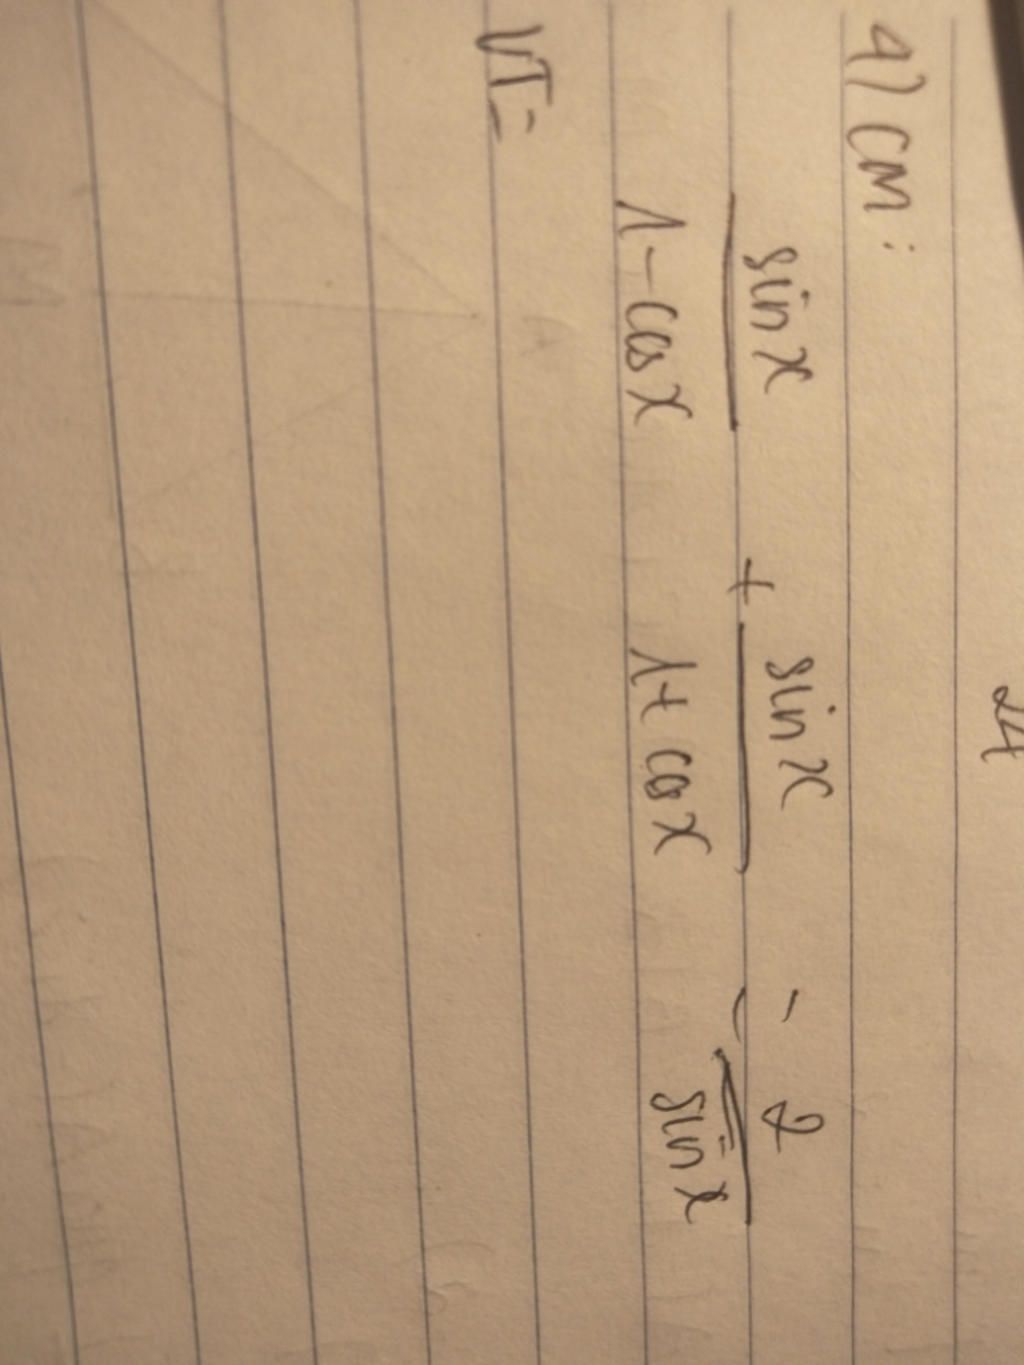 24
4) CM:
sin x / 1 - cos x + sin x / 1 + cos x = 2 / sin x
VT =